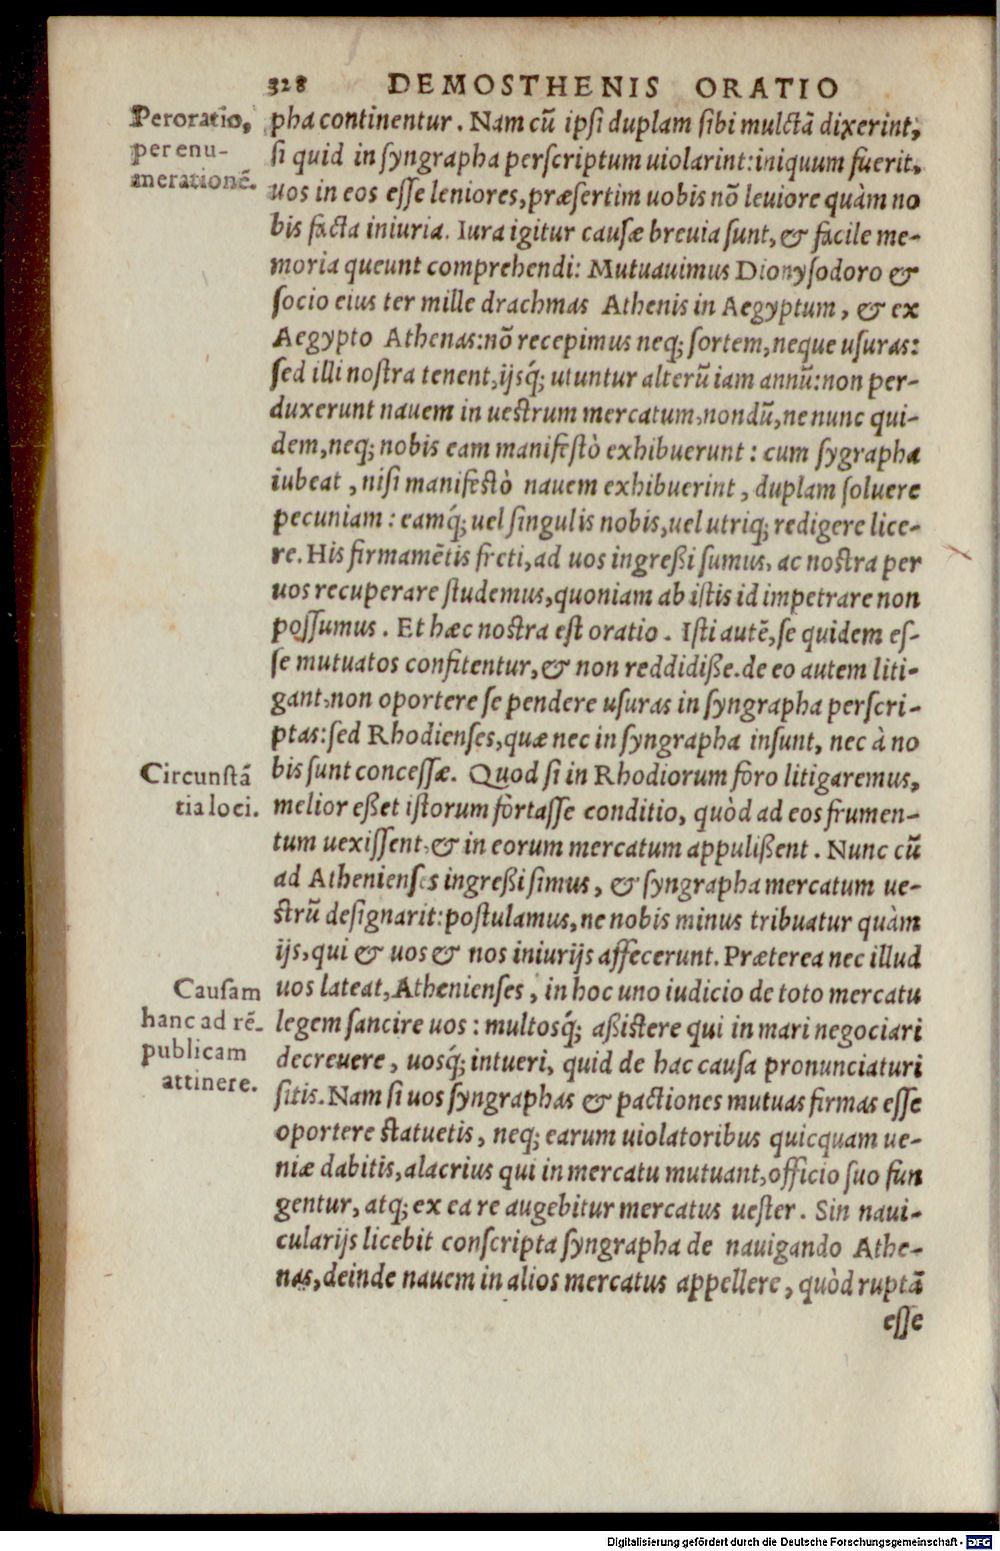 328 DEMOSTHENIS ORATIO
Peroratio,
per enu-
merationē.
pha continentur. Nam cū ipsi duplam sibi mulctā dixerint,
si quid in syngrapha perscriptum uiolarint: iniquum fuerit,
uos in eos esse leniores, præsertim uobis nō leuiore quàm no
bis facta iniuria. Iura igitur causæ breuia sunt, & facile me-
moria queunt comprehendi: Mutuauimus Dionysodoro &
socio eius ter mille drachmas Athenis in Aegyptum, & ex
Aegypto Athenas: nō recepimus neq; sortem, neque usuras:
sed illi nostra tenent, ijsq́; utuntur alterū iam annū: non per-
duxerunt nauem in uestrum mercatum, nondū, ne nunc qui-
dem, neq; nobis eam manifestò exhibuerunt: cum sygrapha
iubeat, nisi manifestò nauem exhibuerint, duplam soluere
pecuniam: eamq́; uel singulis nobis, uel utriq; redigere lice-
re. His firmamētis freti, ad uos ingreßi sumus, ac nostra per
uos recuperare studemus, quoniam ab istis id impetrare non
possumus. Et hæc nostra est oratio. Isti autē, se quidem es-
se mutuatos confitentur, & non reddidiße. de eo autem liti-
gant, non oportere se pendere usuras in syngrapha perscri-
ptas: sed Rhodienses, quæ nec in syngrapha insunt, nec à no
Circunstā
tia loci.
bis sunt concessæ. Quod si in Rhodiorum foro litigaremus,
melior eßet istorum fortasse conditio, quòd ad eos frumen-
tum uexissent, & in eorum mercatum appulißent. Nunc cū
ad Athenienses ingreßi simus, & syngrapha mercatum ue-
strū designarit: postulamus, ne nobis minus tribuatur quàm
ijs, qui & uos & nos iniurijs affecerunt. Præterea nec illud
Causam
hanc ad rē-
publicam
attinere.
uos lateat, Athenienses, in hoc uno iudicio de toto mercatu
legem sancire uos: multosq́; aßistere qui in mari negociari
decreuere, uosq́; intueri, quid de hac causa pronunciaturi
sitis. Nam si uos syngraphas & pactiones mutuas firmas esse
oportere statuetis, neq; earum uiolatoribus quicquam ue-
niæ dabitis, alacrius qui in mercatu mutuant, officio suo fun
gentur, atq; ex ea re augebitur mercatus uester. Sin naui-
cularijs licebit conscripta syngrapha de nauigando Athe-
nas, deinde nauem in alios mercatus appellere, quòd ruptā
esse
Digitalisierung gefördert durch die Deutsche Forschungsgemeinschaft - DFG